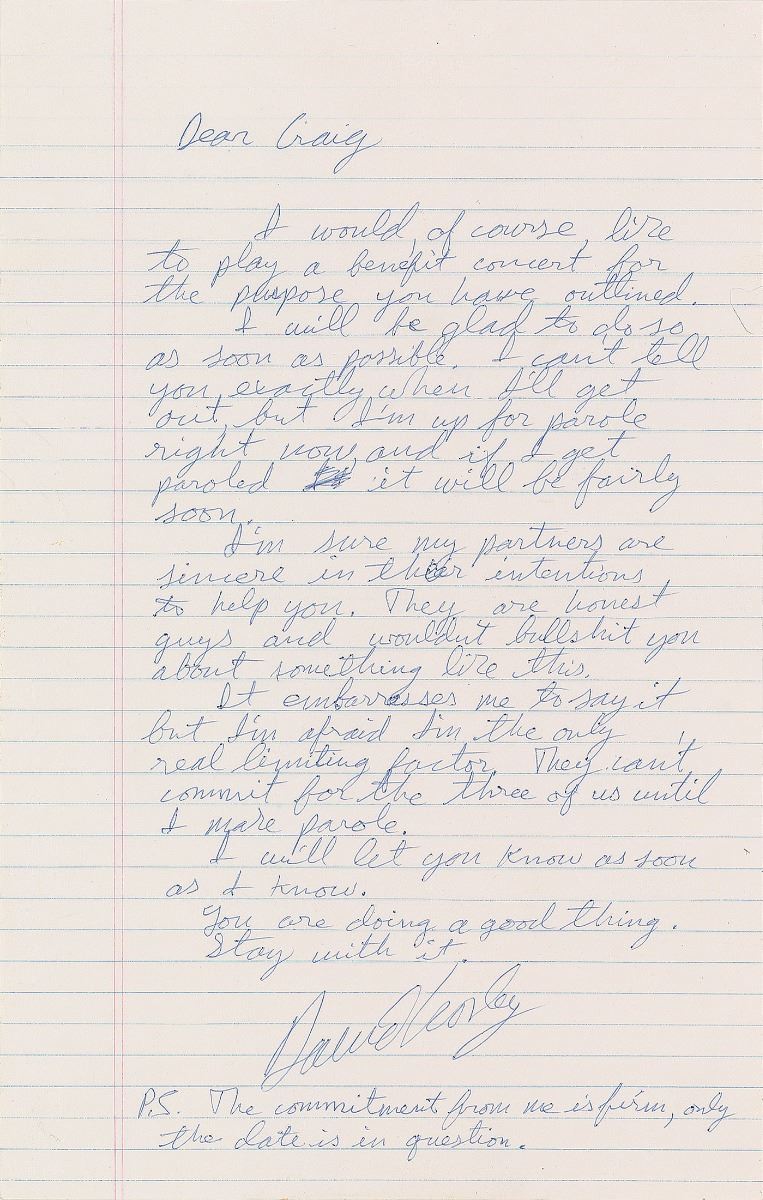 Dear Craig
I would, of course, like
to play a benefit concert for
the purpose you have outlined.
I will be glad to do so
as soon as possible. I can't tell
you exactly when I'll get
out, but I'm up for parole
right now, and if I get
paroled it will be fairly
soon.
I'm sure my partners are
sincere in their intentions
to help you. They are honest
guys and wouldn't bullshit you
about something like this.
It embarrasses me to say it
but I'm afraid I'm the only
real limiting factor. They can't
commit for the three of us until
I make parole.
I will let you know as soon
as I know.
You are doing a good thing.
Stay with it.
David Crosby
P.S. The commitment from me is firm, only
the date is in question.